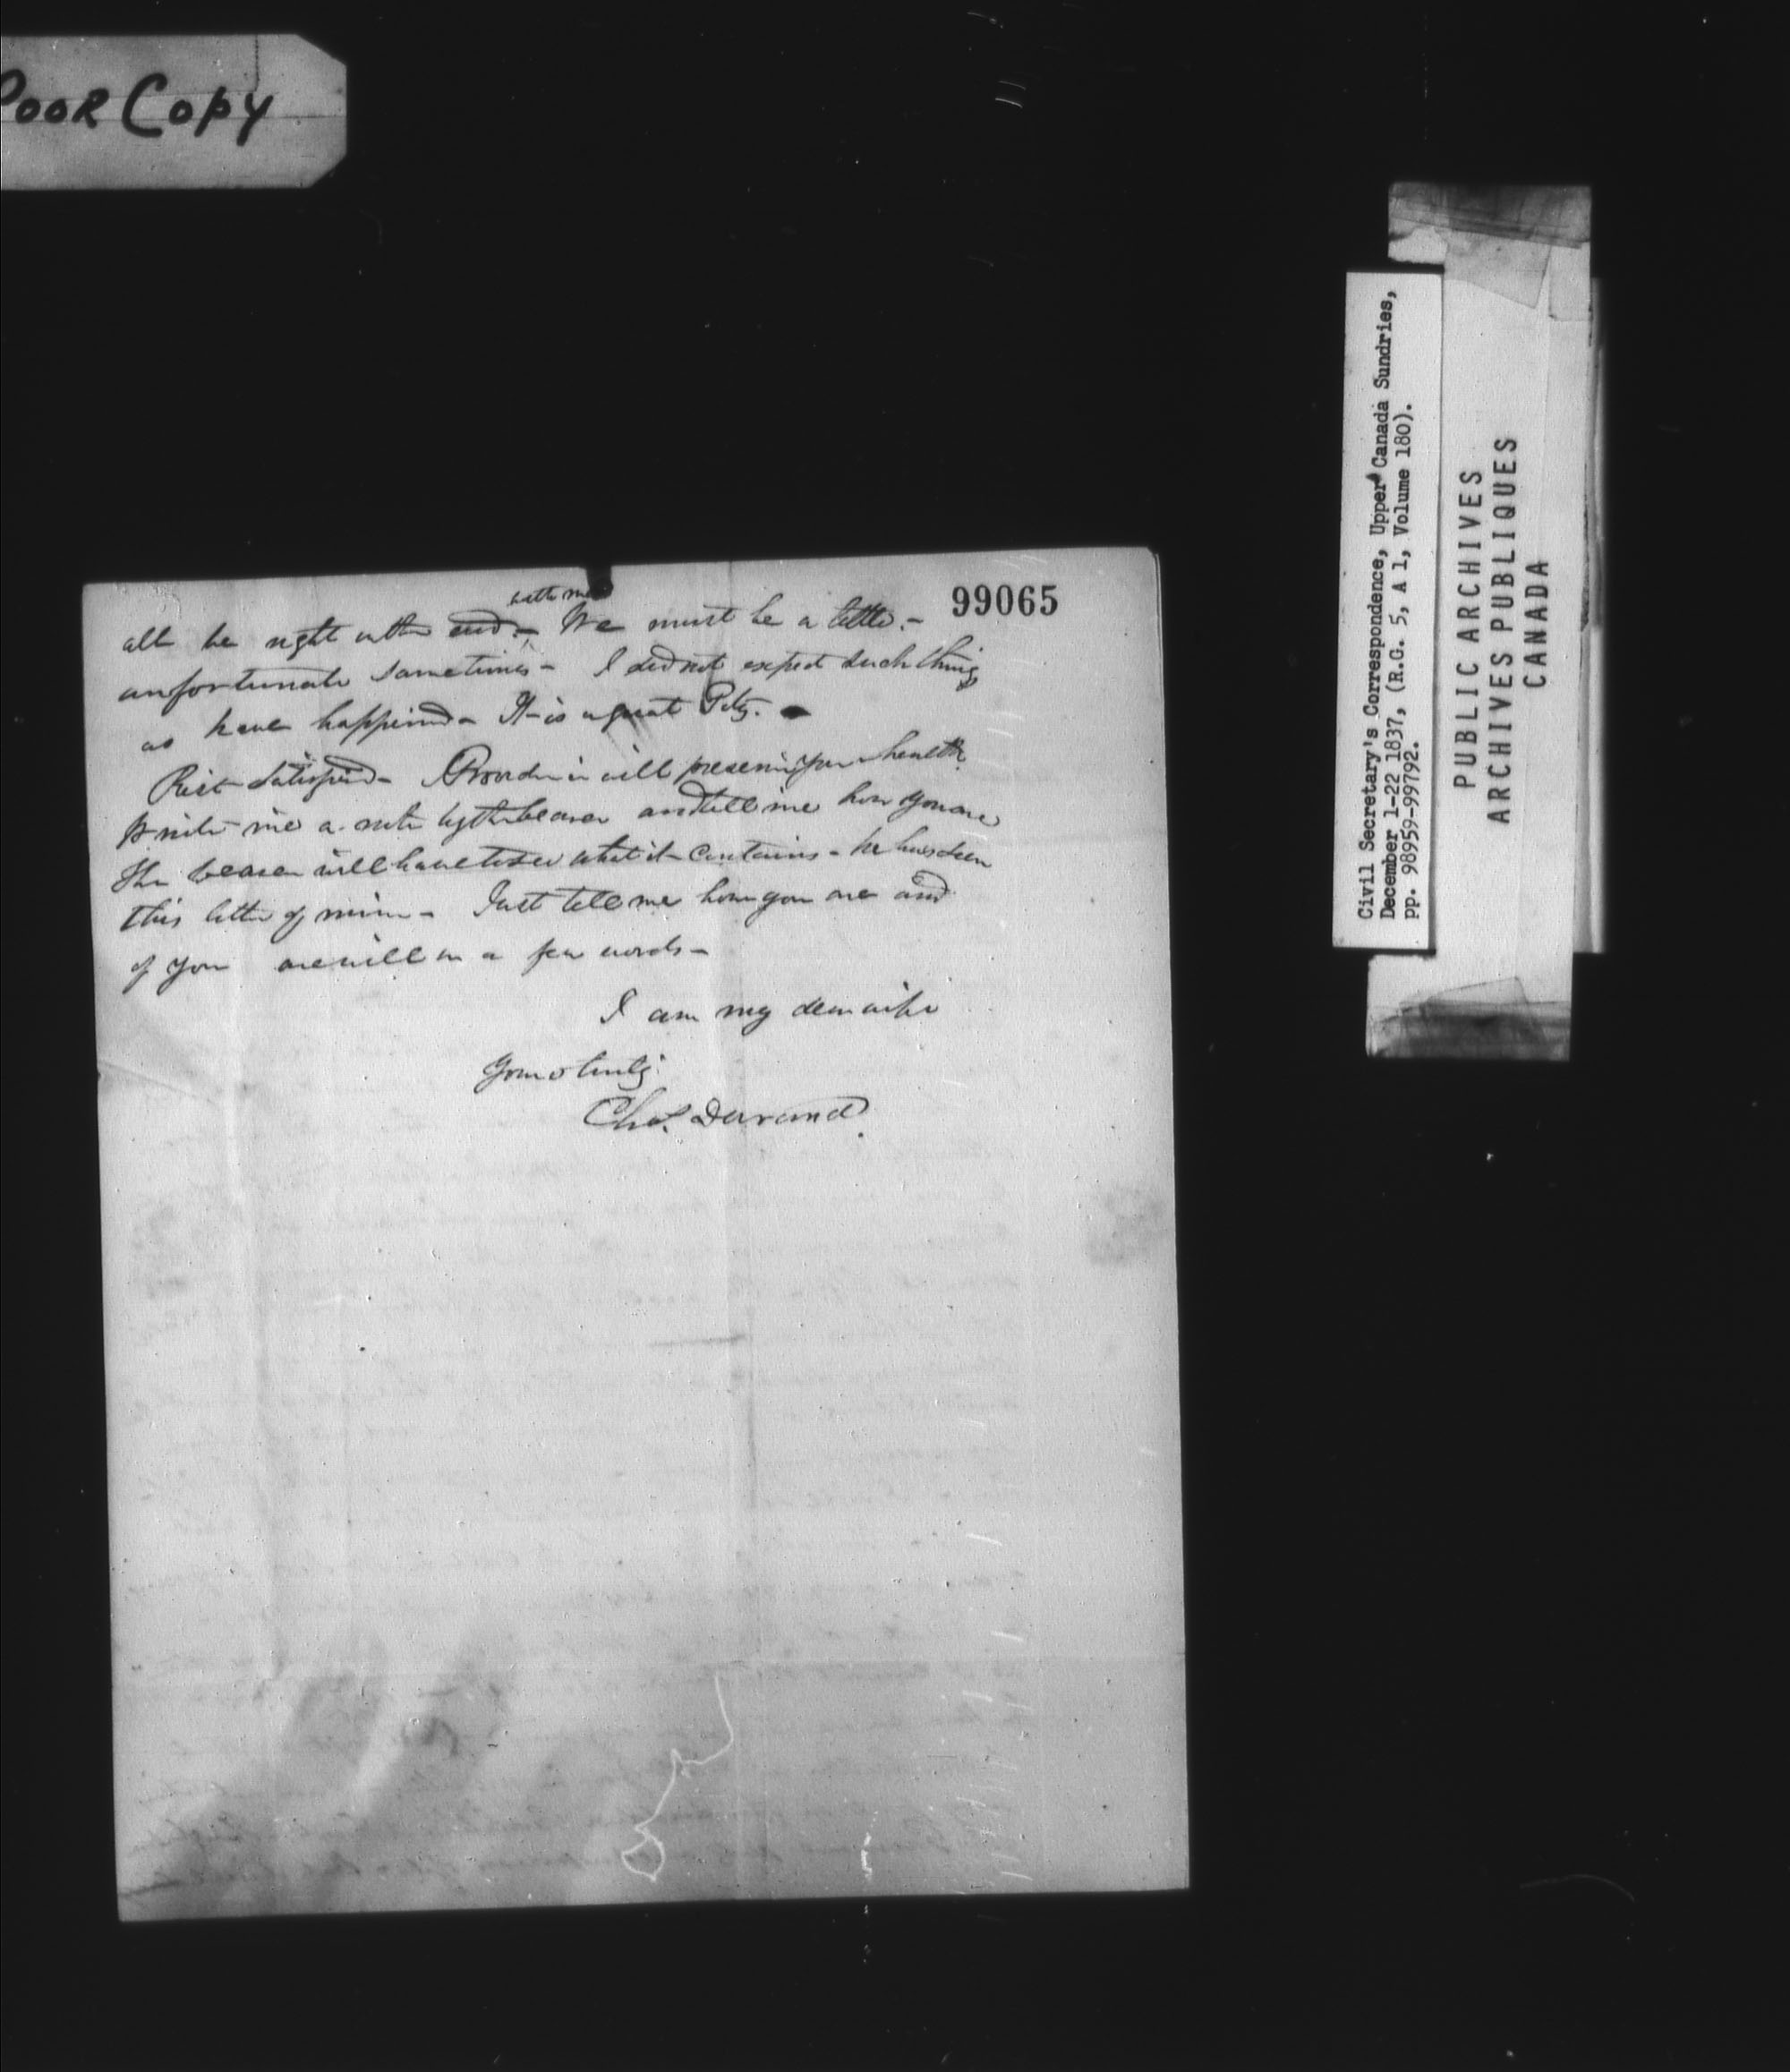 POOR COPY
99065
with me
all be right in the end. - We must be a little. -
unfortunate sometimes - I did not expect such things
as have happened - It is a great Pity. -
Rest satisfied - Providence will preserve your health
Write me a note by the bearer and tell me how you are
The bearer will have to see what it contains - he has seen
this letter of mine - Just tell me how you are and
if you are well in a few words -
I am my dear wife
Yours truly
Chas. Durand.
Civil Secretary's Correspondence, Upper Canada Sundries,
December 1-22 1837, (R.G. 5, A 1, Volume 180).
pp. 98959-99792.
PUBLIC ARCHIVES
ARCHIVES PUBLIQUES
CANADA